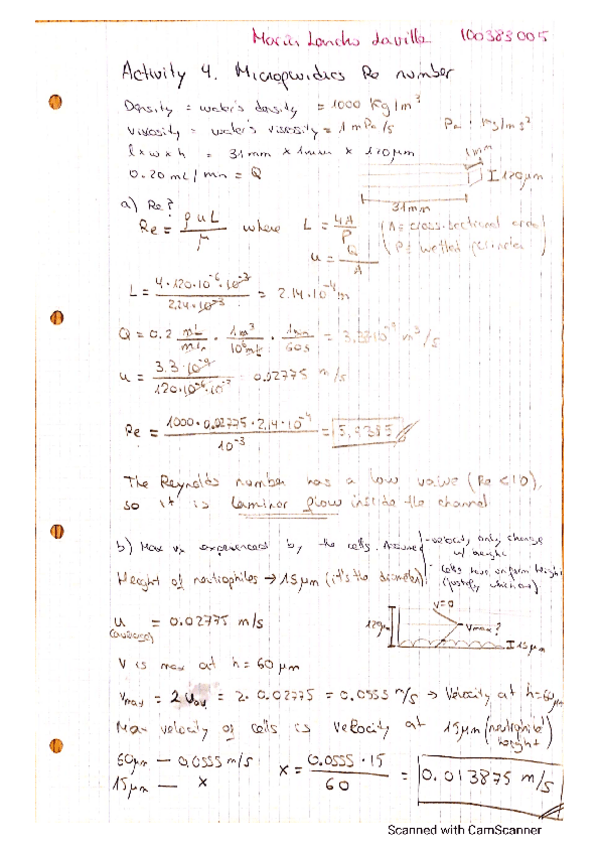 María Lancho Lavilla 100383005
Activity 4. Microfluidics Re number
Density = water's density = 1000 Kg/m³
Viscosity = water's viscosity = 1 mPa/s Pa = Kg/ms²
l x w x h = 31mm x 1mm x 120μm
0.20 mL/min = Q
1mm
I 120μm
31mm
a) Re?
Re = ρuL/μ where L = 4A/P (A = cross-sectional area)
(P = wetted perimeter)
u = Q/A
L = 4·120·10⁻⁶·10⁻³ / 2.24·10⁻³ = 2.14·10⁻⁴ m
Q = 0.2 mL/min · 1m³/10⁶mL · 1min/60s = 3.3·10⁻⁹ m³/s
u = 3.3·10⁻⁹ / 120·10⁻⁶·10⁻³ = 0.02775 m/s
Re = 1000·0.02775·2.14·10⁻⁴ / 10⁻³ = 5,9385
The Reynolds number has a low value (Re < 10),
so it is laminar flow inside the channel
b) Max vx experienced by the cells. Assumed - velocity only change
w/ height
- cells have uniform height
(justify which one)
Height of neutrophiles → 15μm (it's the diameter)
v=0
120μm
vmax?
I 15μm
u = 0.02775 m/s
(average)
V is max at h = 60μm
Vmax = 2 Uav = 2· 0.02775 = 0.0555 m/s → Velocity at h=60μm
Max velocity of cells is velocity at 15μm (neutrophile'
height)
60μm — 0,0555 m/s
15μm — x
x = 0.0555 · 15 / 60 = 0.013875 m/s
Scanned with CamScanner